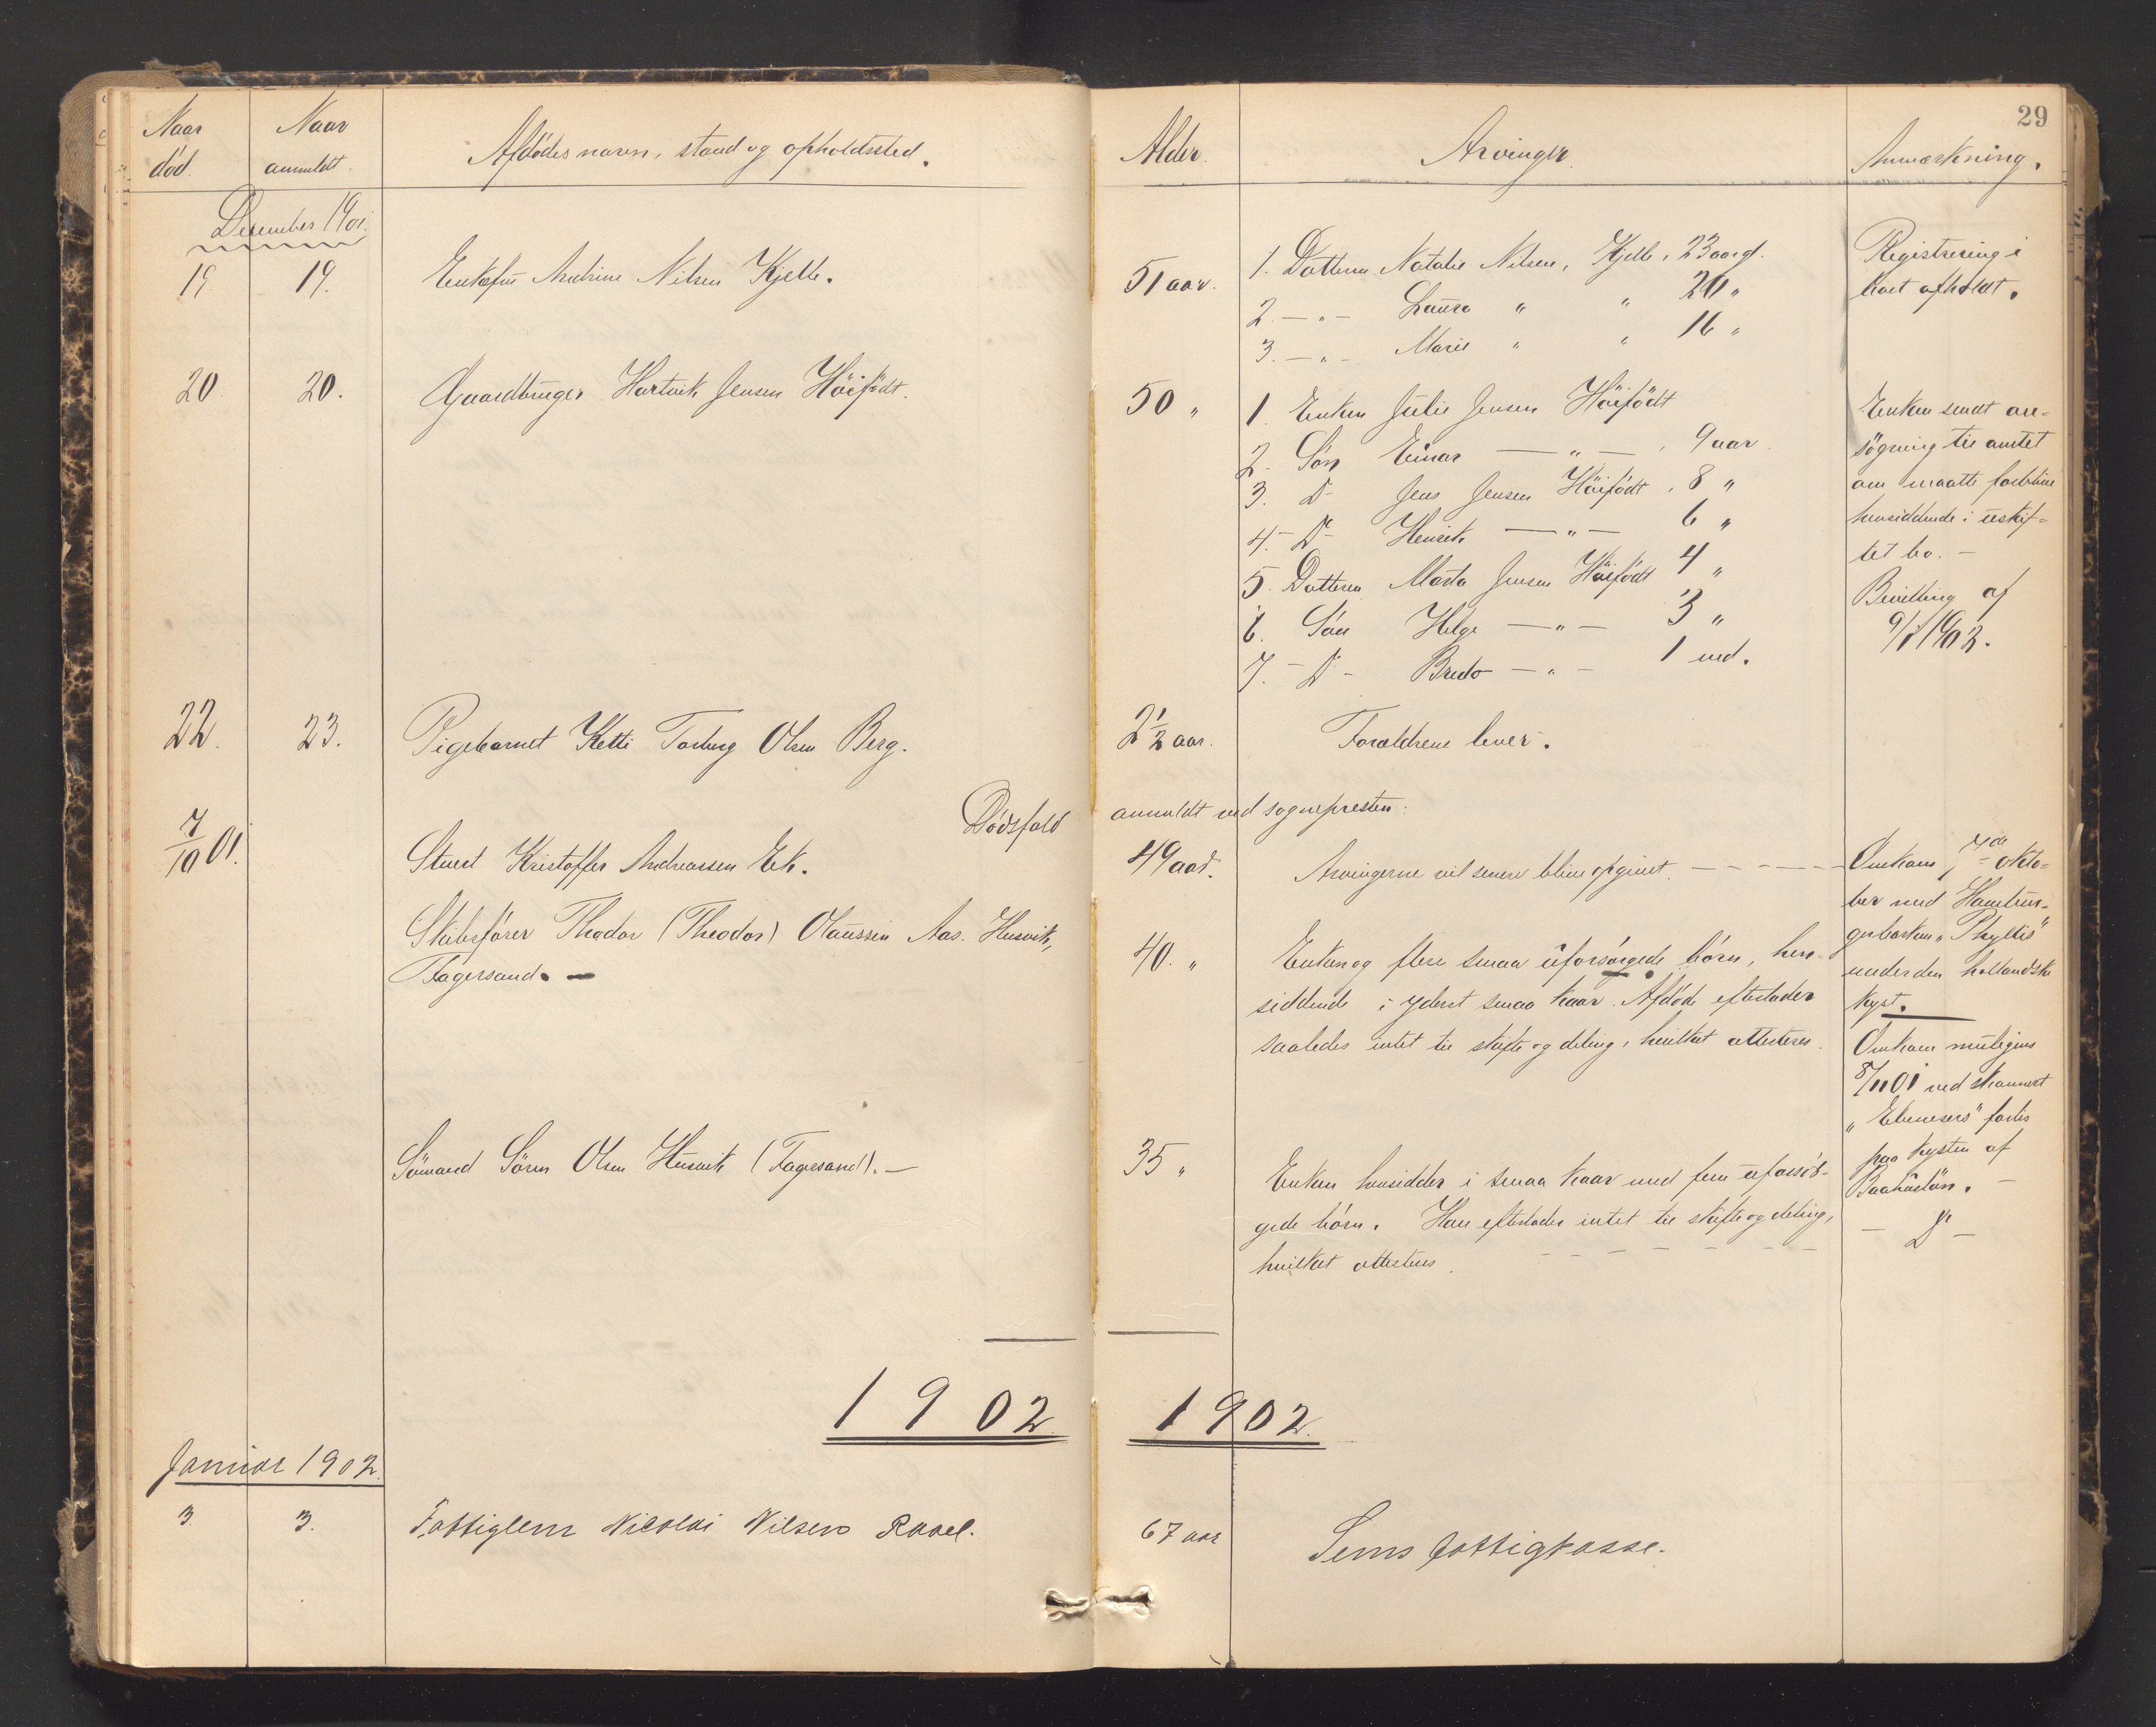 29
Naar død.
Naar anmeldt.
Afdødes navn, stand og opholdssted.
Alder.
Arvinger.
Anmærkning.
December 1901.
19. 19. Enkefru Andrine Nilsen Kjelle. 51 aar.
1. Datteren Natalie Nilsen, Kjelle, 23 aar gl.
2. — „ — Laura „ „ 20 „
3. — „ — Marie „ „ 16 „
Registrering i
boet afholdt.
20. 20. Gaardbruger Hartvik Jensen Höifödt. 50 „
1. Enken Julie Jensen Höifödt
2. Sön Einar — „ — , 9 aar
3. Do Jens Jensen Höifödt, 8 „
4. Do Henrik — „ — 6 „
5. Datteren Marta Jensen Höifödt 4 „
6. Sön Helge — „ — 3 „
7. Do Bredo — „ — 1 md.
Enken sendt an-
søgning til amtet
om maatte forblive
hensiddende i uskif-
tet bo. —
Bevilling af
9/1 1902.
22. 23. Pigebarnet Ketti Torberg Olsen Berg. 2 1/2 aar. Forældrene lever.
Dødsfald anmeldt ved sognepresten:
7/10 01. Stuert Kristoffer Andreassen Ek. 49 aar. Arvingerne vil senere blive opgivet. — — — —
Omkom 7de okto-
ber med Hambur-
gerbarken „Phyllis"
under den hollandske
kyst.
Skibsfører Theodor (Theodor) Olaussen Aas. Husvik,
Fagersand. —
40. „
Enken og flere smaa uforsørgede børn, hen-
siddende i yderst smaa kaar. Afdøde efterlader
saaledes intet til skifte og deling, hvilket attesteres.
Omkom muligens
8/11 01 ved skonnert
„Ebenesers" forlis
paa kysten af
Baahuslän. —
Sömand Sören Olsen Husvik (Fagersand). — 35 „
Enken hensidder i smaa kaar med fem uforsör-
gede börn. Han efterlader intet til skifte og deling,
hvilket attesteres. — — — — — —
— Do —
1902. 1902.
Januar 1902.
3. 3. Fattiglem Nicolai Nilsen Raael. 67 aar Sems fattigkasse.